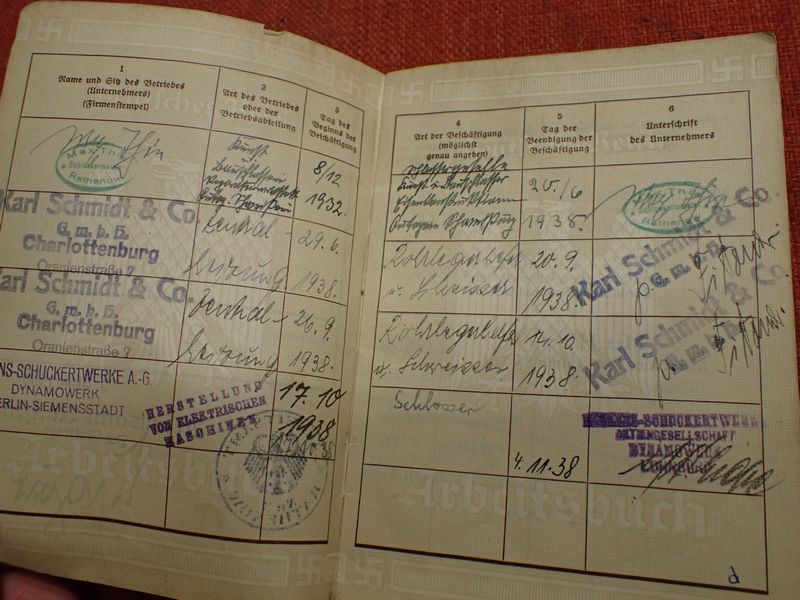 1
Name und Sitz des Betriebes
(Unternehmers)
(Firmenstempel)
2
Art des Betriebes
oder der
Betriebsabteilung
3
Tag des
Beginns der
Beschäftigung
Max Thin
Rathenow
Kunst
Bauschlosserei
8/12
1932.
Karl Schmidt & Co.
G.m.b.H.
Charlottenburg
Oranienstraße 7
Zentral-
heizung
29.6.
1938.
Karl Schmidt & Co.
G.m.b.H.
Charlottenburg
Oranienstraße 7
Zentral-
heizung
26.9.
1938.
NS-SCHUCKERTWERKE A.-G.
DYNAMOWERK
ERLIN-SIEMENSSTADT
HERSTELLUNG
VON ELEKTRISCHEN
MASCHINEN
17.10
1938
4
Art der Beschäftigung
(möglichst
genau angeben)
5
Tag der
Beendigung der
Beschäftigung
6
Unterschrift
des Unternehmers
Schlossergeselle
Kunst u. Bauschlosser
Eisenkonstruktionen
Autogen Schweißung
20./6
1938.
Rohrlegerhelfer
u. Schweisser
20.9.
1938.
Karl Schmidt & Co.
G.m.b.H.
Rohrlegerhelfer
u. Schweisser
14.10.
1938.
Karl Schmidt & Co.
G.m.b.H.
Schlosser
4.11.38
SCHUCKERTWERKE
AKTIENGESELLSCHAFT
DYNAMOWERK
Arbeitsbuch
Arbeitsbuch
d